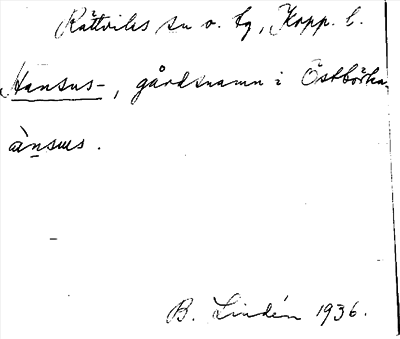 Rättviks sn o. tg, Kopp. l.
Hansus-, gårdsnamn i Östbörka
ànsus.
B. Lindén 1936.